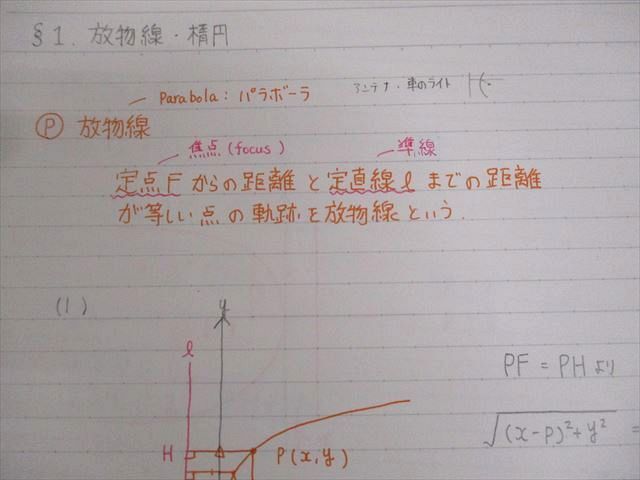 §1. 放物線・楕円
Parabola: パラボーラ
アンテナ・車のライト
Ⓟ 放物線
焦点(focus) 準線
定点Fからの距離と定直線ℓまでの距離
が等しい点の軌跡を放物線という.
(1)
y
ℓ
PF = PHより
√(x-p)²+y² =
H
P(x,y)